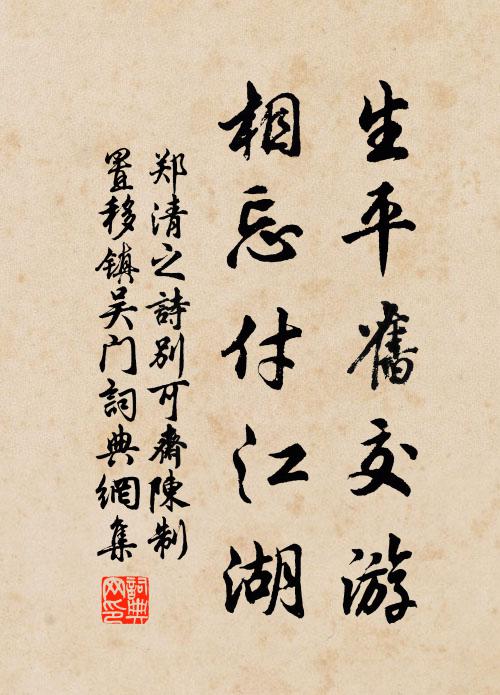 生平舊交游
相忘付江湖
郑清之詩别可齋陳制
置移镇吴门詞典網集
詞典
网印